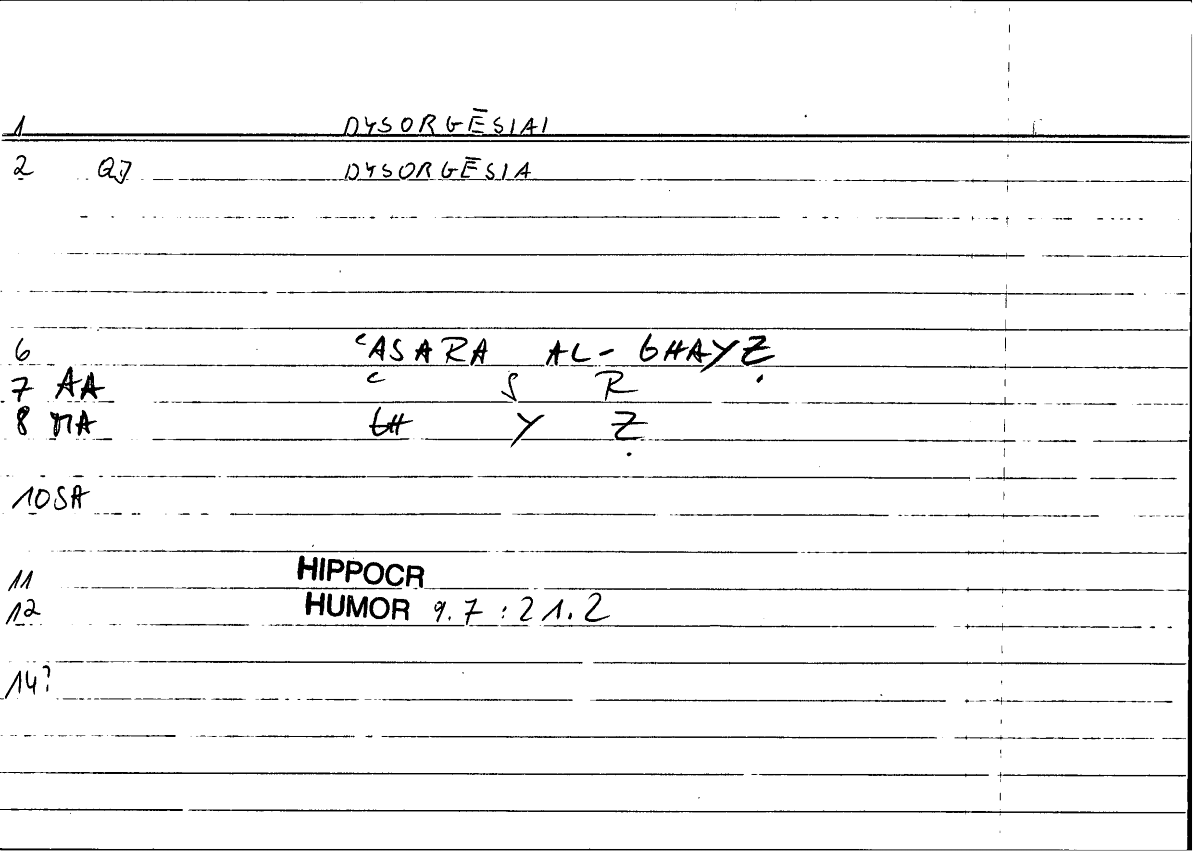 1 DYSORGĒSIAI
2 QJ DYSORGĒSIA
6 ʿASARA AL-GHAYẒ
7 AA ʿ S R
8 MA GH Y Ẓ
10 SA
11 HIPPOCR
12 HUMOR 9.7 : 21.2
14?